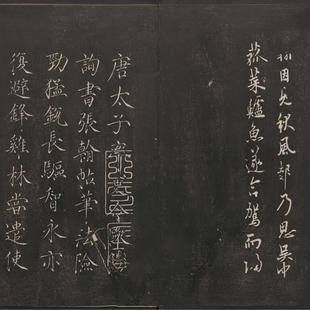 翰因見秋風起乃思吳中
菰菜鱸魚遂命駕而歸
唐太子率更令歐陽
詢書張翰帖筆法險
勁猛銳長驅智永亦
復避鋒雞林嘗遣使